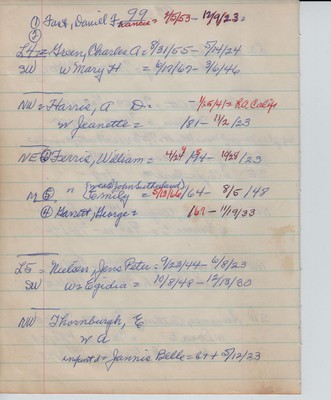 99
① Fast, Daniel F. Francis = 3/5/53 - 12/9/23 =
②
L4 = Green, Charles A = 8/31/55 - 5/14/24
SW w Mary H = 6/17/67 - 3/6/46
NW = Harris, A D = - 1/25/41 = L.A. Calif
w Jeanette = /81 - 11/2/23
NE ③ Ferris, William = 4/24/94 - 10/28/23
(was to John Sutherland)
M ⑤ " Emily = 5/13/66/64 - 8/5/48
④ Garrett, George = /61 - 11/19/33
L5 = Nielson, Jens Peter = 9/23/44 - 6/8/23
SW W = Egidia = 10/8/48 - 12/13/30
NW Thornburgh, E
w A
infant d = Jannie Belle = 64 + 5/12/23